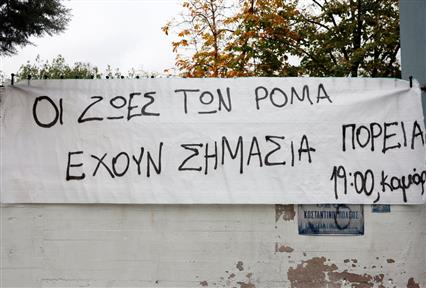 ΟΙ ΖΩΕΣ ΤΩΝ ΡΟΜΑ
ΕΧΟΥΝ ΣΗΜΑΣΙΑ
ΠΟΡΕΙΑ
19:00, καμάρ